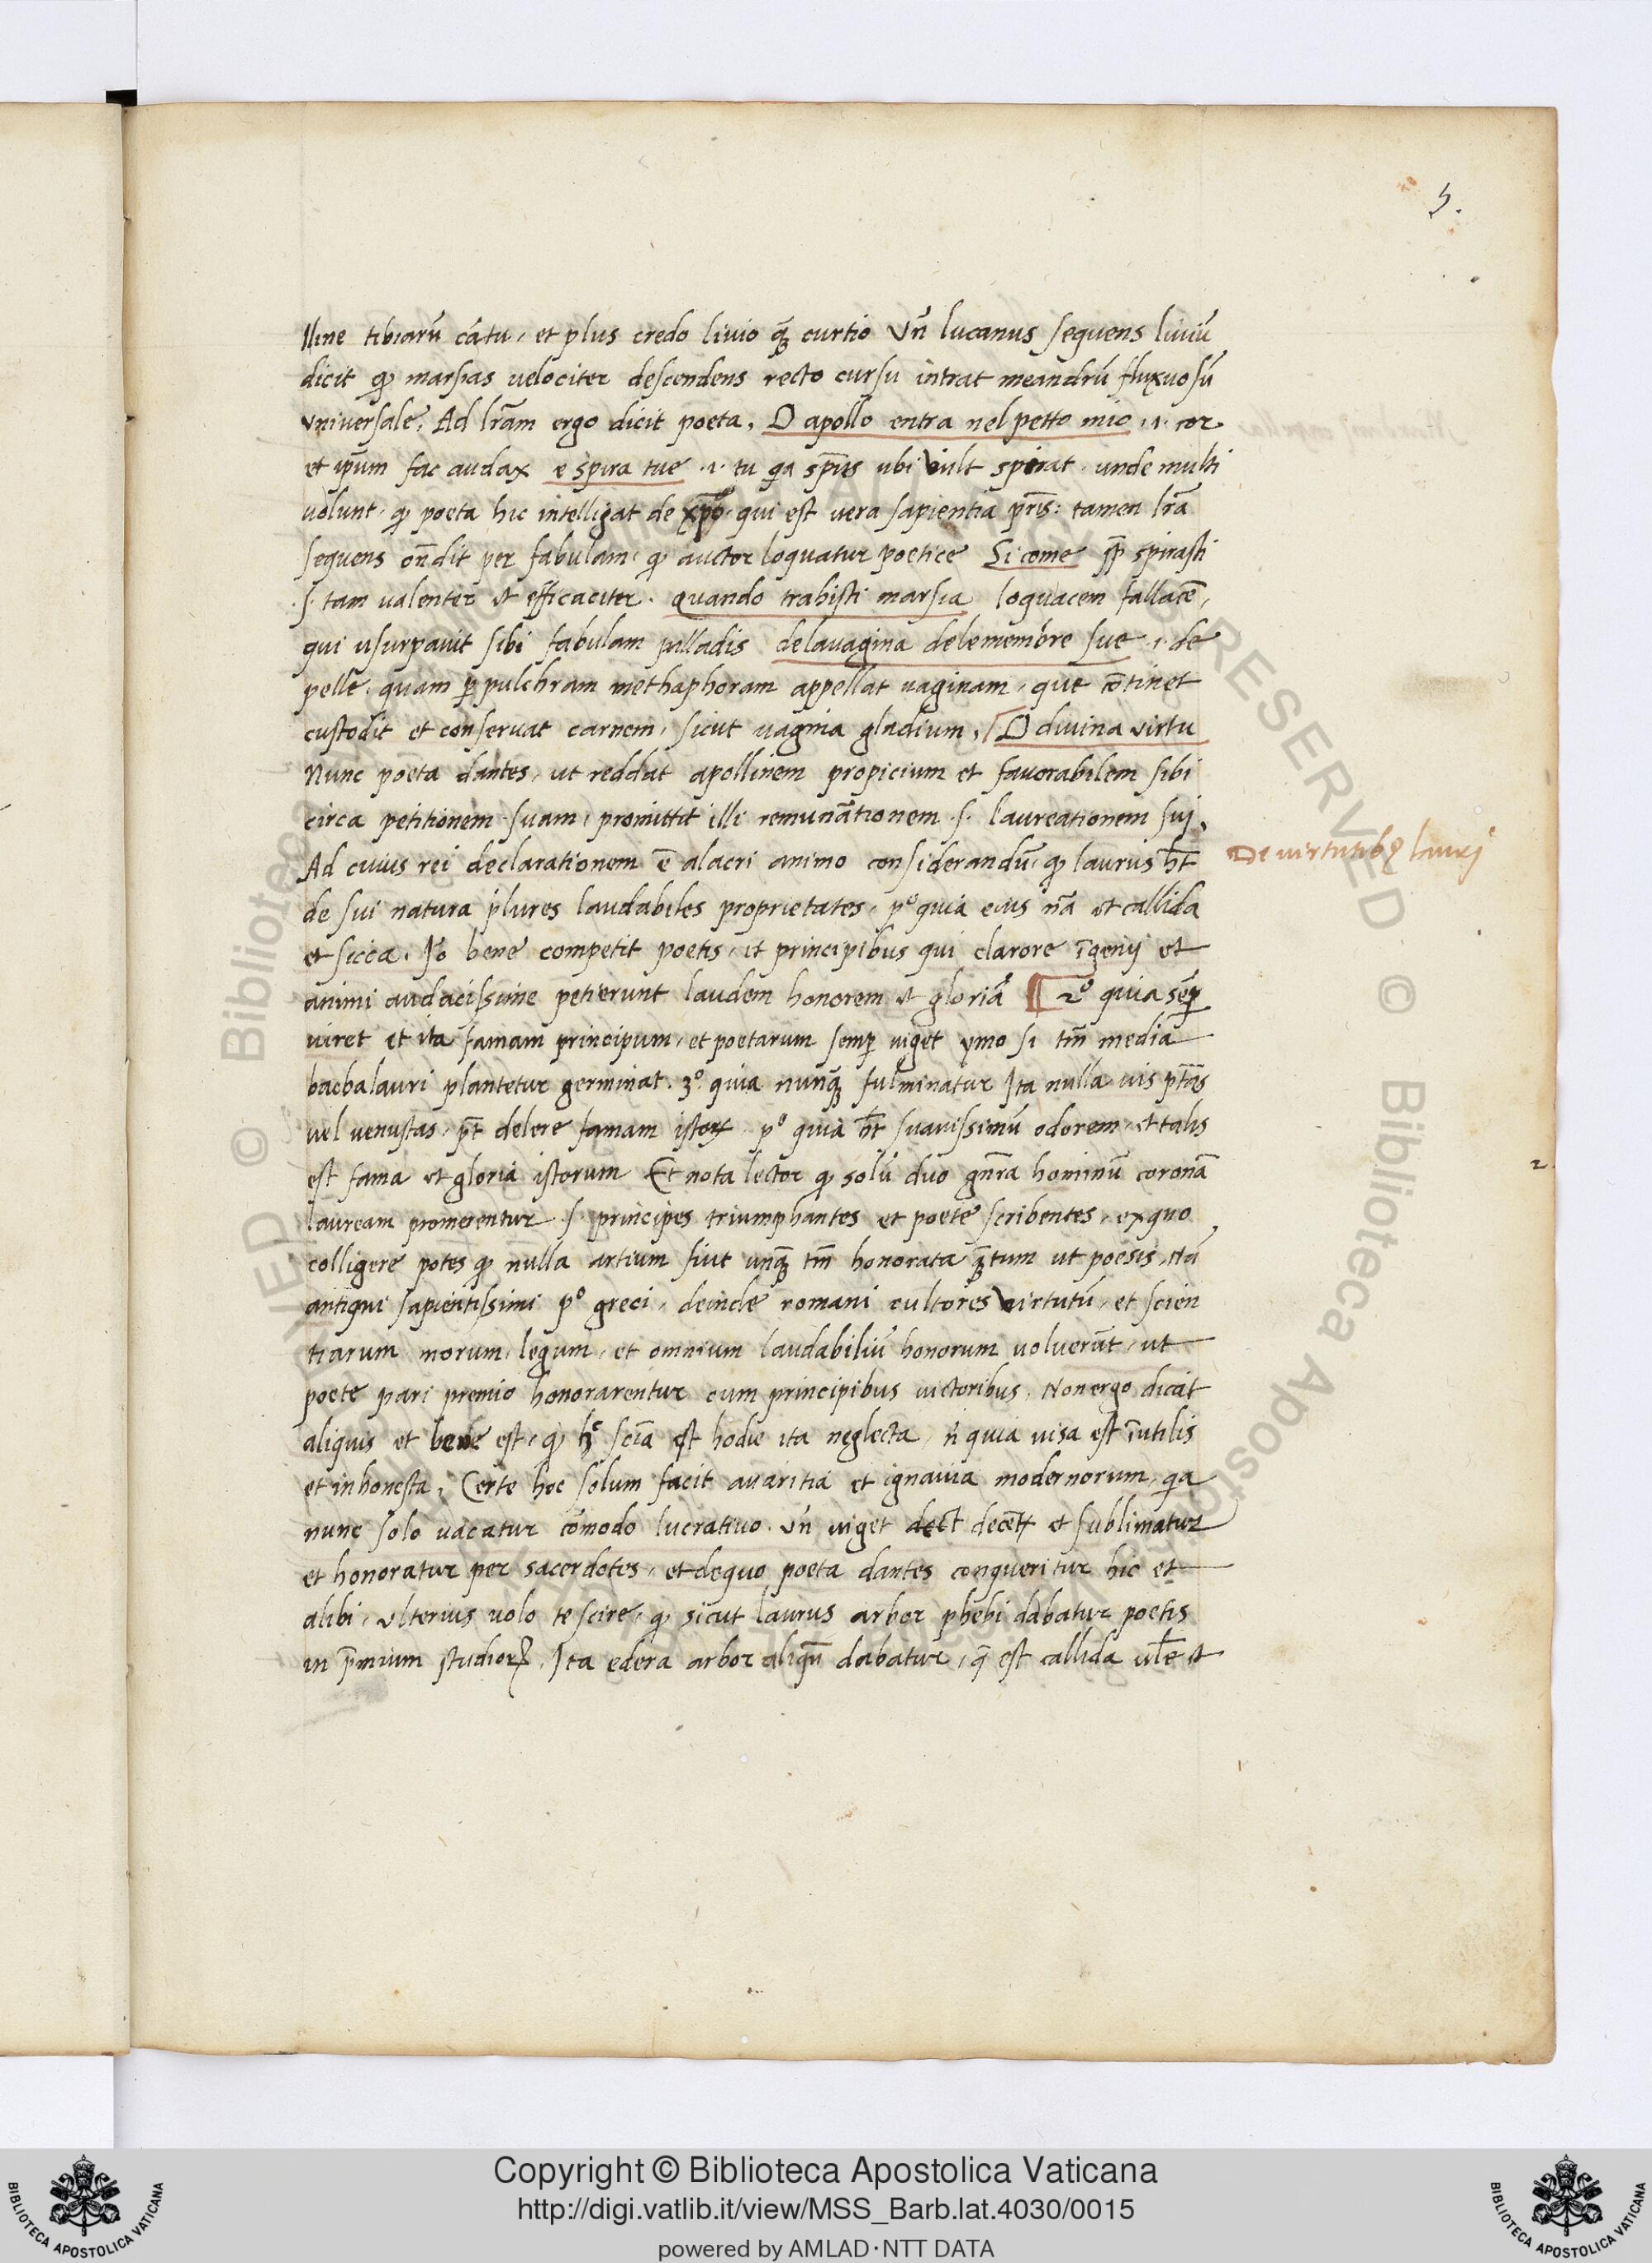 5.
lline tibiarū cātu, et plus credo livio quā curtio Vn̄ lucanus sequens liviū
dicit ꝙ marsias velociter descendens recto cursu intrat meandrū fluxuosū
vniversale. Ad lr̄am ergo dicit poeta. O apollo entra nel petto mio .i. cor
et ip̄um fac audax e spira tue .i. tu q̄a sp̄us ubi vult spirat. unde multi
volunt. ꝙ poeta hic intelligat de xp̄o. qui est vera sapientia pr̄is: tamen lr̄a
sequens on̄dit per fabulam. ꝙ auctor loquatur poetice Si come spirasti
.s. tam valenter et efficaciter. Quando trahisti marsia loquacem fallacē,
qui usurpavit sibi fabulam palladis delavagina delemembre sue .i. de
pelle. quam ꝑ pulchram methaphoram appellat vaginam, que cōtinet
custodit et conservat carnem, sicut vagina gladium. O divina virtu
Nunc poeta dantes, ut reddat apollinem propicium et favorabilem sibi
circa petitionem suam, promittit illi remun̄ationem .s. laureationem sui.
Ad cuius rei declarationem ē alacri animo considerandū. ꝙ laurus h̄t
De virtutibꝫ lauri
de sui natura plures laudabiles proprietates. pº quia eius nā et callida
et sicca. Iō bene competit poetis, et principibus qui clarore īgenij et
animi audacissime petierunt laudem honorem et gloriā ¶ 2º quia semꝑ
viret et ita famam principum, et poetarum semꝑ viget ymo si tm̄ media
bacba lauri plantetur germinat. 3º quia nunqā fulminatur Ita nulla vis pt̄as
vel venustas. pt̄ delere famam istoꝝ. pº quia h̄t suavissimū odorem, et talis
est fama et gloria istorum Et nota lector ꝙ solū duo gn̄ra hominū coronā
lauream promerentur .s. principes triumphantes et poete scribentes, ex quo
colligere potes ꝙ nulla artium fuit unqā tm̄ honorata qātum ut poesis, Nā
antiqui sapientissimi pº greci, deinde romani cultores virtutū, et scien
tiarum morum, legum, et omnium laudabiliū honorum voluerūt, ut
poete pari premio honorarentur cum principibus victoribus. Non ergo dicat
aliquis et bene est, ꝙ hec sciā est hodie ita neglecta, n̄ quia visa est īutilis
et inhonesta. Certe hoc solum facit avaritia et ignavia modernorum, q̄a
nunc solo vacatur cōmodo lucrativo. Vn̄ viget et sublimatur
et honoratur per sacerdotes, et dequo poeta dantes conqueritur hic et
alibi, ulterius volo te scire, ꝙ sicut laurus arbor phebi dabatur poetis
in p̄mium studioꝝ. Ita edera arbor aliqn̄ dabatur, q̄ est callida vl̄e et
2